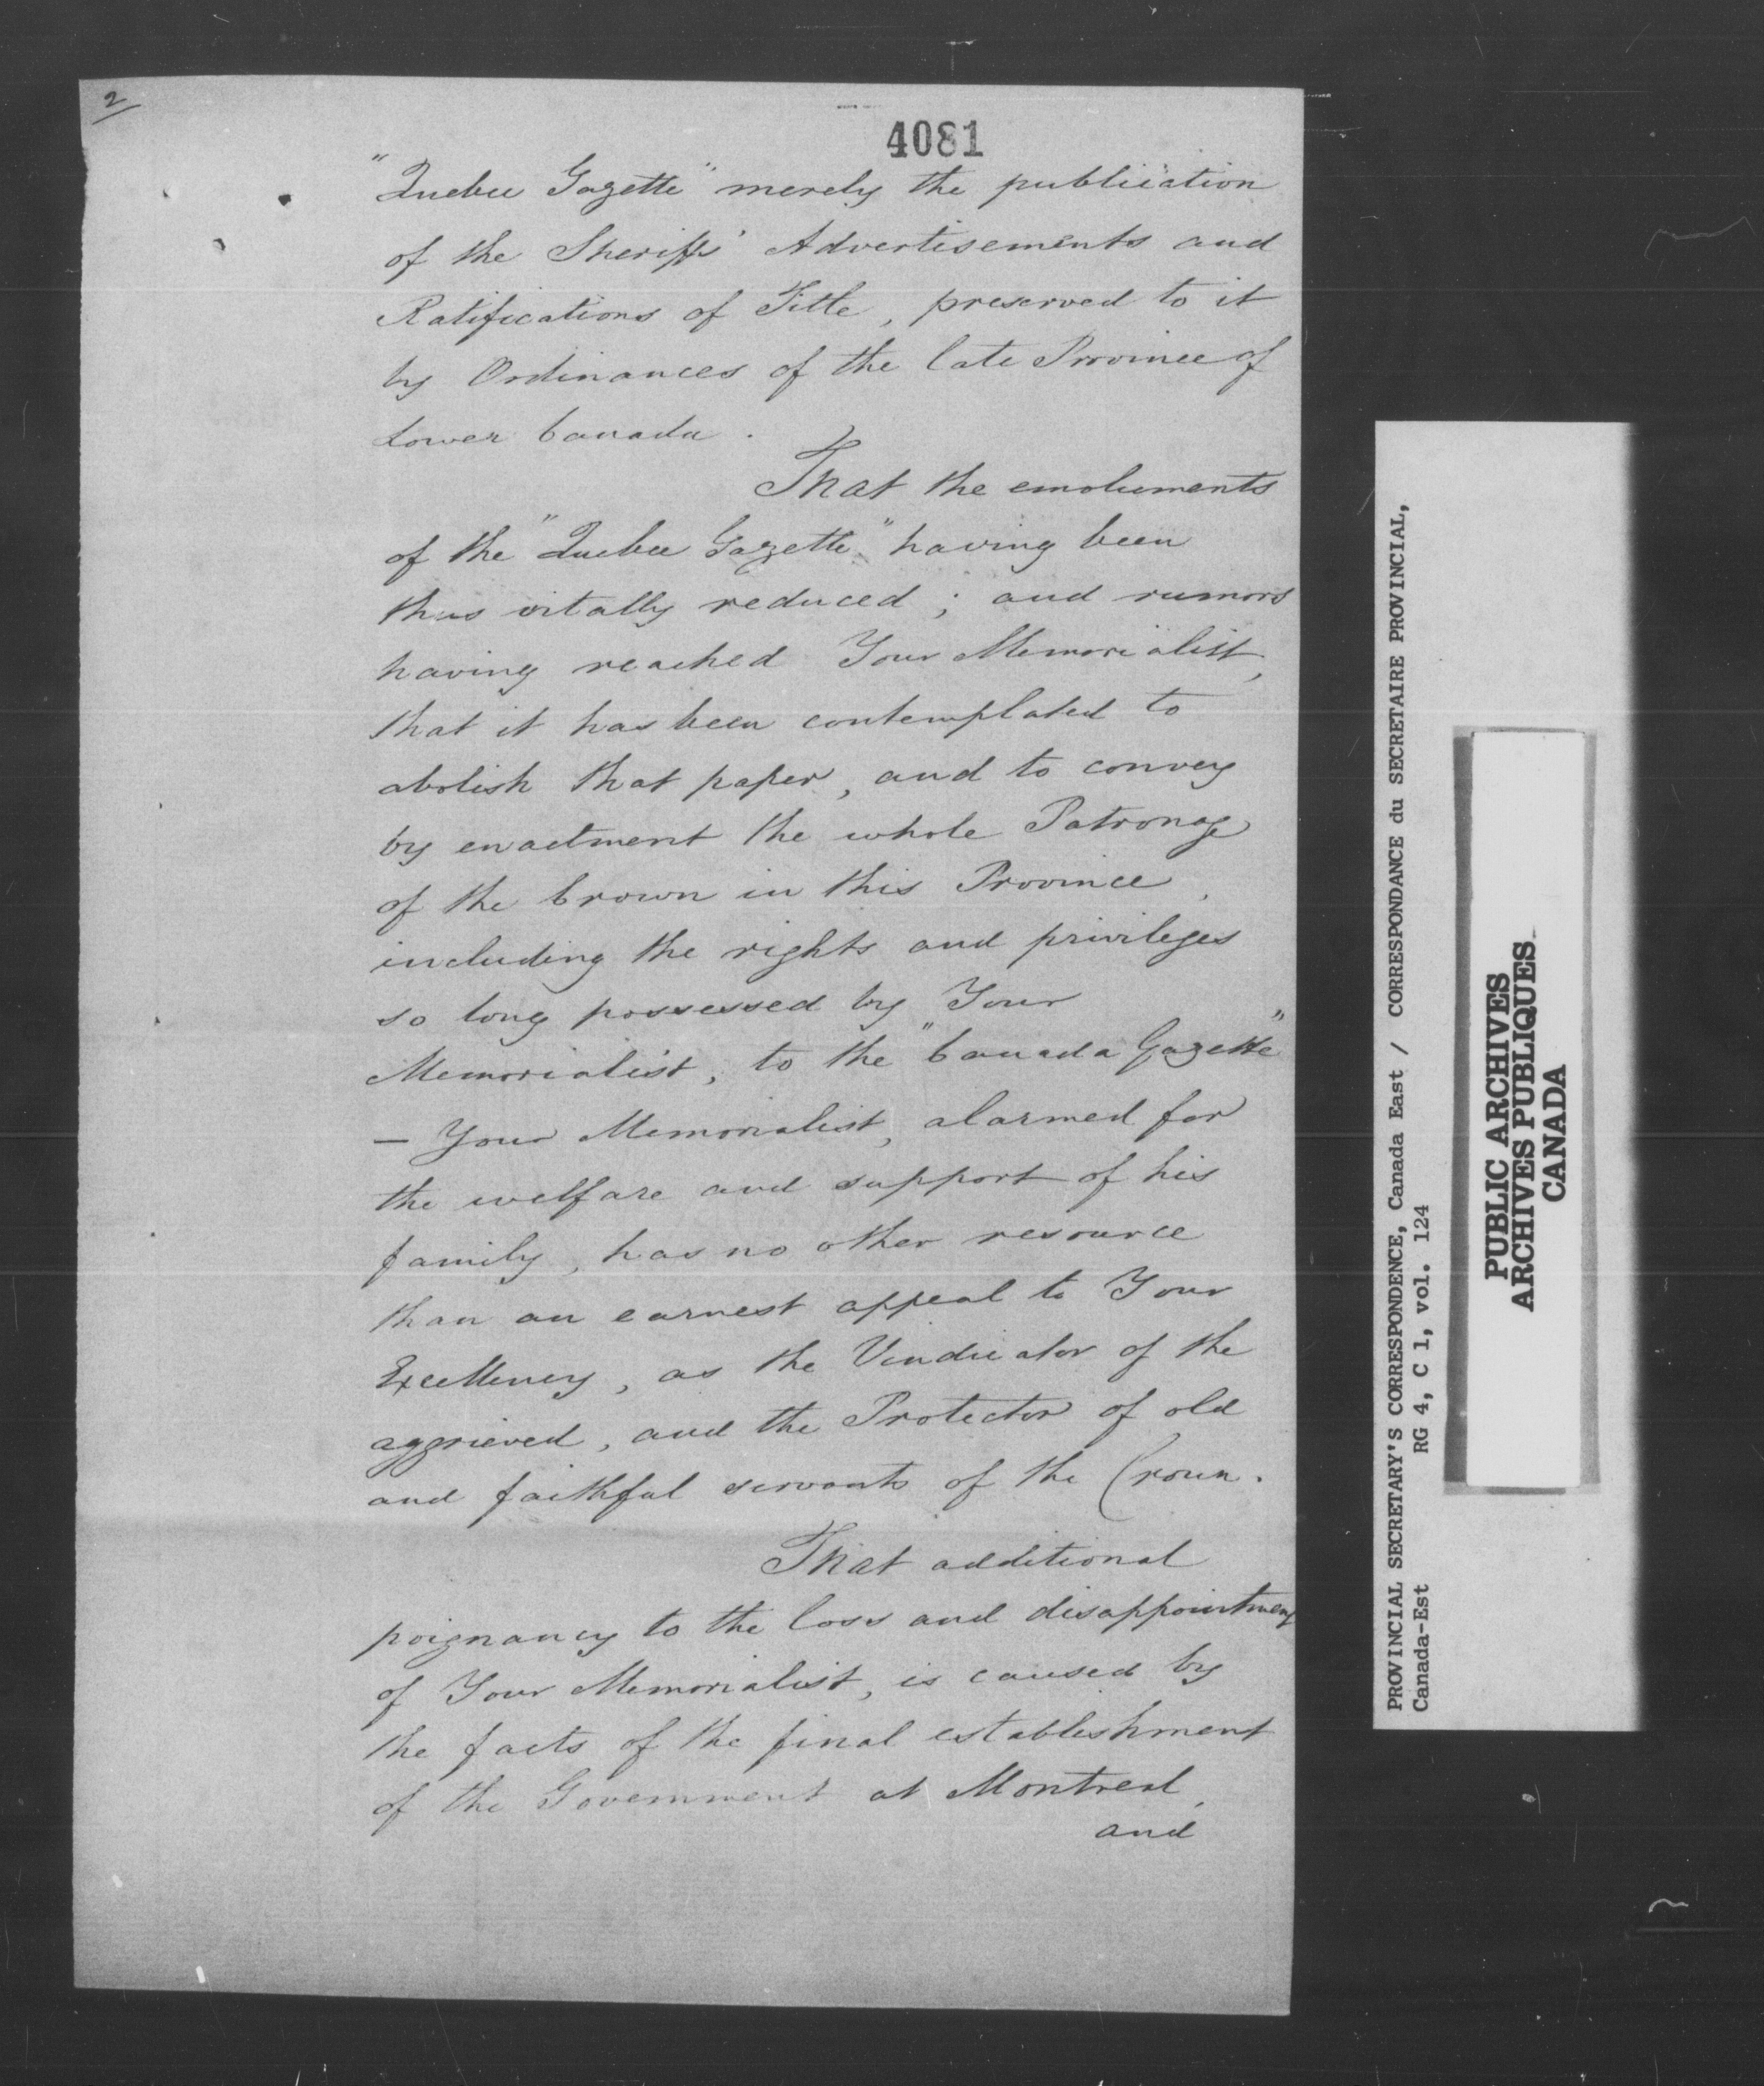 2
4081
"Quebec Gazette" merely the publication
of the Sheriffs' Advertisements and
Ratifications of Title, preserved to it
by Ordinances of the late Province of
Lower Canada.
That the emoluments
of the "Quebec Gazette" having been
thus vitally reduced; and rumors
having reached Your Memorialist,
that it has been contemplated to
abolish that paper, and to convey
by enactment the whole Patronage
of the Crown in this Province,
including the rights and privileges
so long possessed by Your
Memorialist, to the "Canada Gazette"
— Your Memorialist, alarmed for
the welfare and support of his
family, has no other resource
than an earnest appeal to Your
Excellency, as the Vindicator of the
aggrieved, and the Protector of old
and faithful servants of the Crown.
That additional
poignancy to the loss and disappointment
of Your Memorialist, is caused by
the facts of the final establishment
of the Government at Montreal,
and
PROVINCIAL SECRETARY'S CORRESPONDENCE, Canada East / CORRESPONDANCE du SECRETAIRE PROVINCIAL,
Canada-Est RG 4, C 1, vol. 124
PUBLIC ARCHIVES
ARCHIVES PUBLIQUES
CANADA